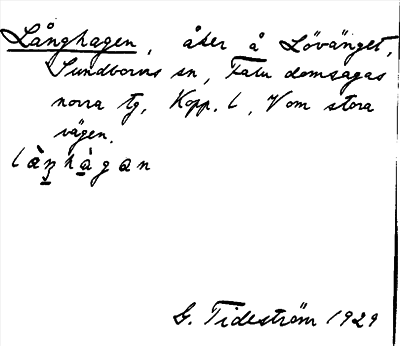 Långhagen, åker å Lövänget,
Sundborns sn, Falu domsagas
norra tg, Kopp. l, V om stora
vägen.
là̀ŋhàgan
G. Tideström 1929